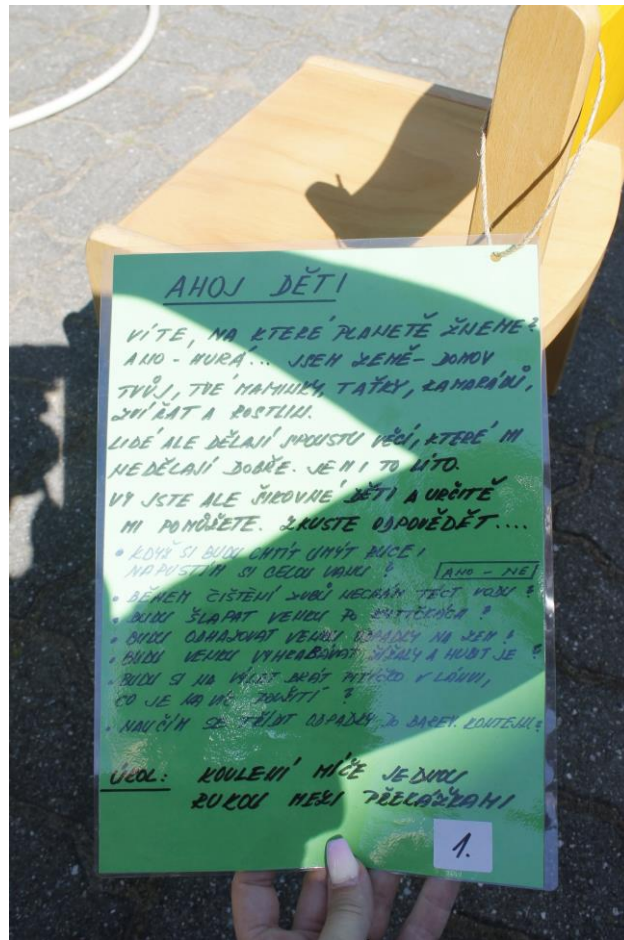 AHOJ DĚTI
VÍTE, NA KTERÉ PLANETĚ ŽIJEME?
ANO - HURÁ... JSEM ZEMĚ - DOMOV
TVŮJ, TVÉ MAMINKY, TAŤKY, KAMARÁDŮ,
ZVÍŘAT A ROSTLIN.
LIDÉ ALE DĚLAJÍ SPOUSTU VĚCÍ, KTERÉ MI
NEDĚLAJÍ DOBŘE. JE MI TO LÍTO.
VY JSTE ALE ŠIKOVNÉ DĚTI A URČITĚ
MI POMŮŽETE. ZKUSTE ODPOVĚDĚT....
• KDYŽ SI BUDU CHTÍT UMÝT RUCE,
NAPUSTÍM SI CELOU VANU? ANO - NE
• BĚHEM ČIŠTĚNÍ ZUBŮ NECHÁM TÉCT VODU?
• BUDU ŠLAPAT VENKU PO KYTIČKÁCH?
• BUDU ODHAZOVAT VENKU ODPADKY NA ZEM?
• BUDU VENKU VYHRABÁVAT ŽÍŽALY A HUBIT JE?
• BUDU SI NA VÝLET BRÁT PITÍČKO V LÁHVI,
CO JE NA VÍC POUŽITÍ?
• NAUČÍM SE TŘÍDIT ODPADKY DO BAREV. KONTEJN.?
ÚKOL: KOULENÍ MÍČE JEDNOU
RUKOU MEZI PŘEKÁŽKAMI
1.